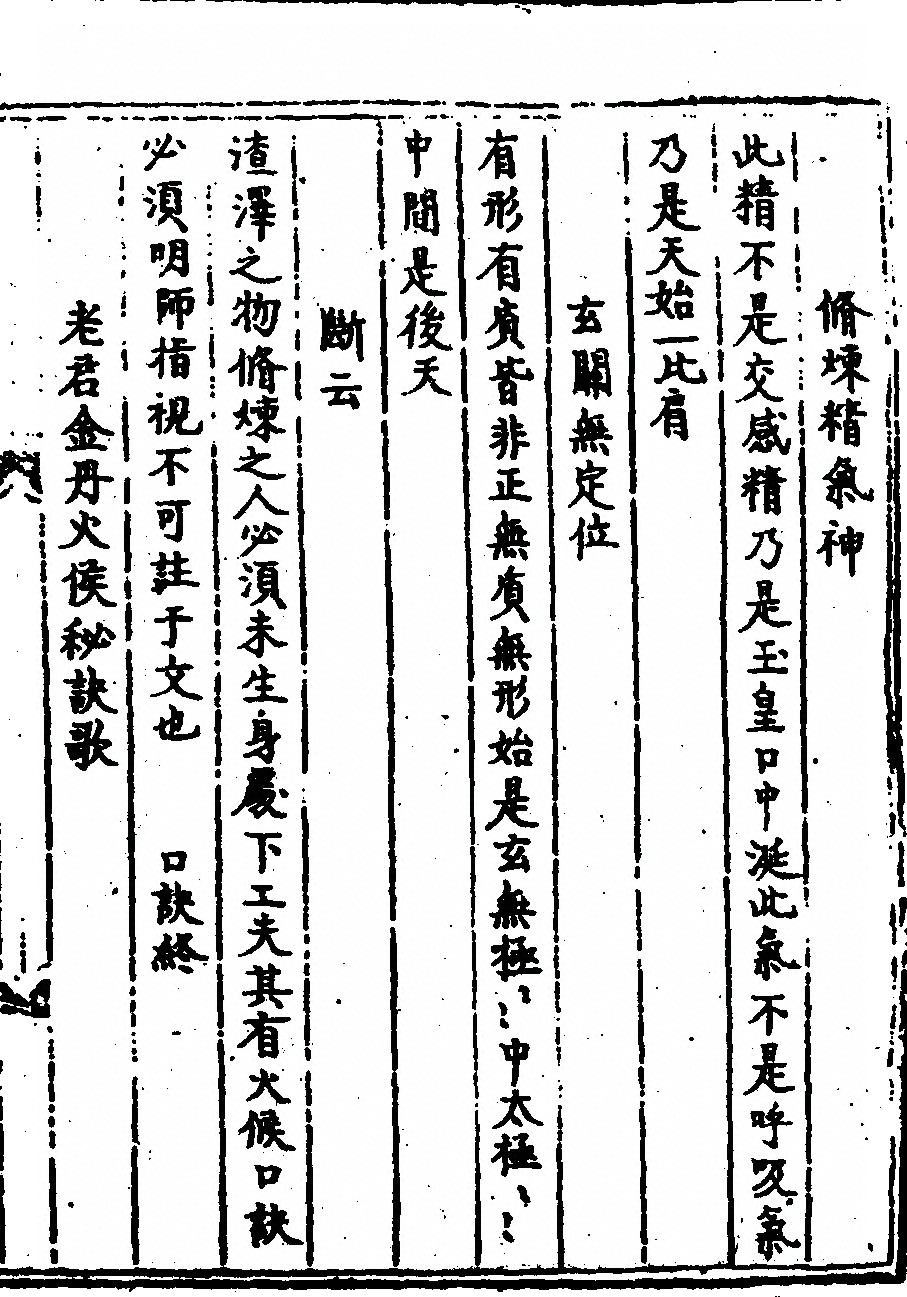 脩煉精氣神
此精不是交感精乃是玉皇口中涎此氣不是呼吸氣
乃是天始一比肩
玄關無定位
有形有質皆非正無質無形始是玄無極〻〻中太極〻〻
中間是後天
斷云
渣澤之物脩煉之人必須未生身處下工夫其有火候口訣
必須明師指視不可註于文也 口訣終
老君金丹火侯秘訣歌